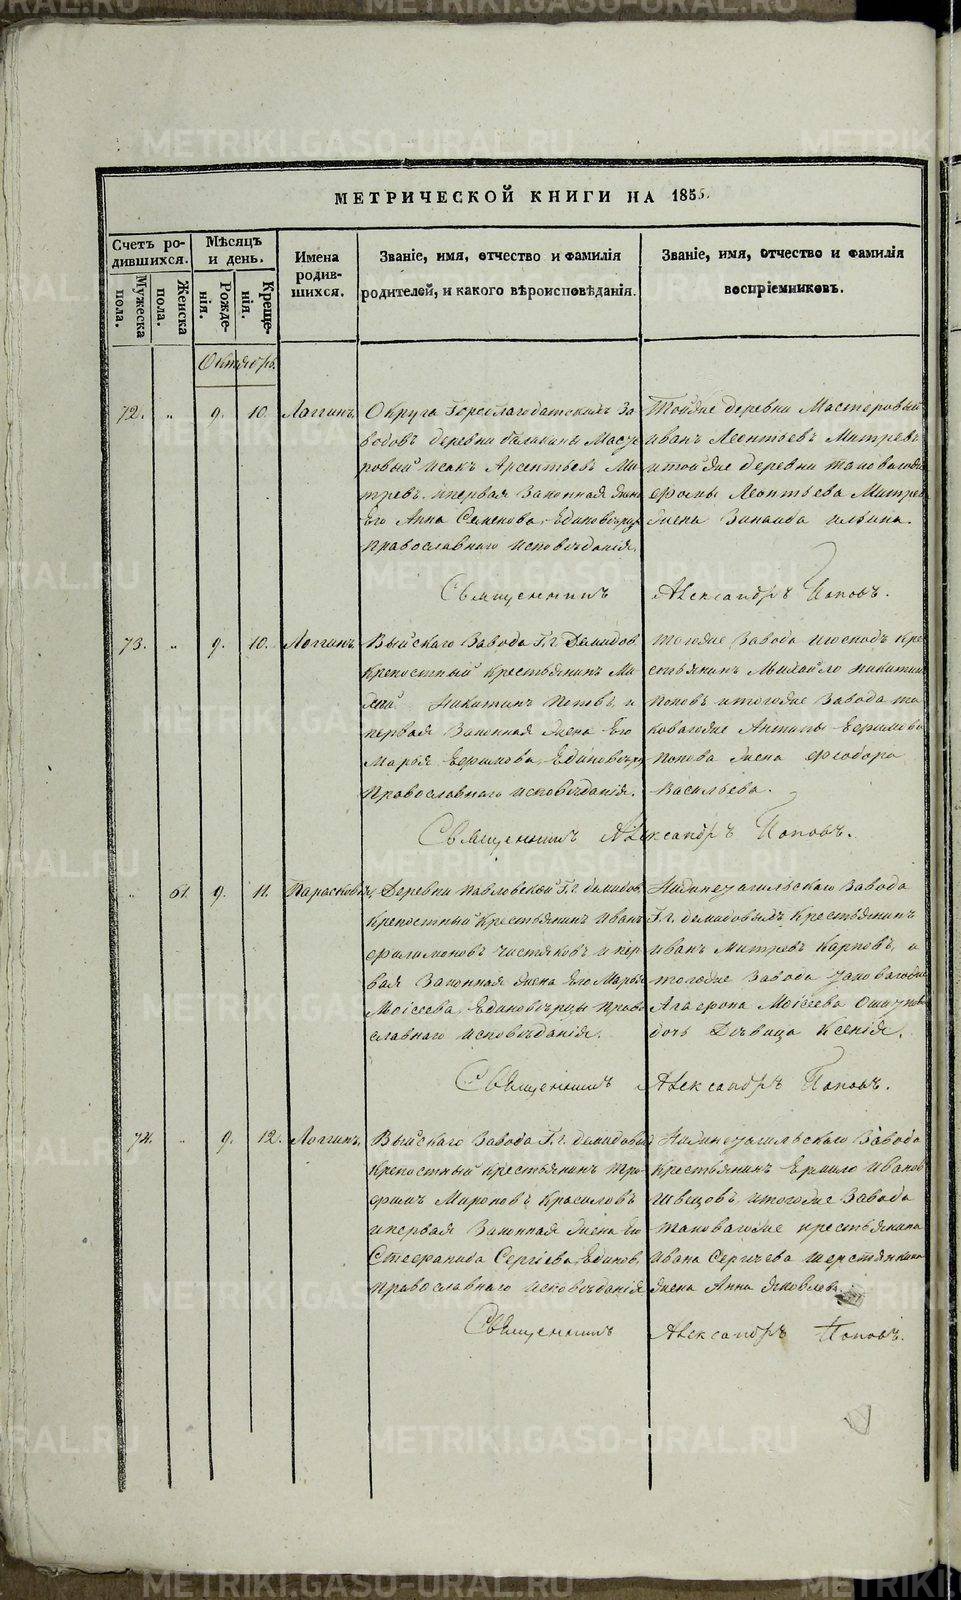 МЕТРИЧЕСКОЙ КНИГИ НА 1855.
Счетъ ро-
дившихся.
Мужеска
пола.
Женска
пола.
Мѣсяцъ
и день.
Рожде-
нія.
Креще-
нія.
Имена
родив-
шихся.
Званіе, имя, отчество и фамилія
родителей, и какого вѣроисповѣданія.
Званіе, имя, отчество и фамилія
воспріемниковъ.
Октябрь
72. " 9. 10. Логгинъ.
Округа Гороблагодатскихъ За
водовъ деревни Балакины Масте
ровый Исакъ Арсентьевъ Ми
тревъ, и первая Законная жена
Его Анна Семенова, Единовѣрцы
Православнаго исповѣданія.
Тойже деревни Мастеровый
Иванъ Леонтьевъ Митревъ
и тойже деревни таковагоже
Фомы Леонтьева Митрева
жена Зинаида Ильина.
Священникъ Александръ Поповъ.
73. " 9. 10. Логгинъ
Выйскаго Завода Г.г. Демидов
крепостный крестьянинъ
Никитинъ Поповъ, и
первая Законная жена Его
Марья Ефимова, Единовѣрцы
Православнаго исповѣданія.
Тогоже Завода и господъ кре
стьянинъ Михайло Никитин
Поповъ и тогоже Завода та
ковагоже Антипы Ефимова
Попова жена Феодора
Васильева.
Священникъ Александръ Поповъ.
" 61. 9. 11. Параскевія,
Деревни Павловской Г.г. Демидов.
крепостный крестьянинъ Иванъ
Филимоновъ Чистяковъ и пер
вая Законная жена Его Марья
Моісеева, Единовѣрцы Право
славнаго исповѣданія.
Нижнетагильскаго Завода
Г.г. Демидовыхъ крестьянинъ
Иванъ Митревъ Карповъ, и
тогоже Завода таковагоже
Агафона Моісеева
дочь Дѣвица Ксенія.
Священникъ Александръ Поповъ.
74. " 9. 12. Логгинъ.
Выйскаго Завода Г.г. Демидовыхъ
крепостный крестьянинъ Тро
фимъ Мироновъ Красиловъ
и первая Законная жена Его
Стефанида Сергіева, Единов.
Православнаго исповѣданія
Нижнетагильскаго Завода
крестьянинъ Ермило Иванов
Швецовъ, и тогоже Завода
таковагоже крестьянина
Ивана Сергѣева Шерстянкина
жена Анна Яковлева.
Священникъ Александръ Поповъ.
METRIKI.GASO-URAL.RU